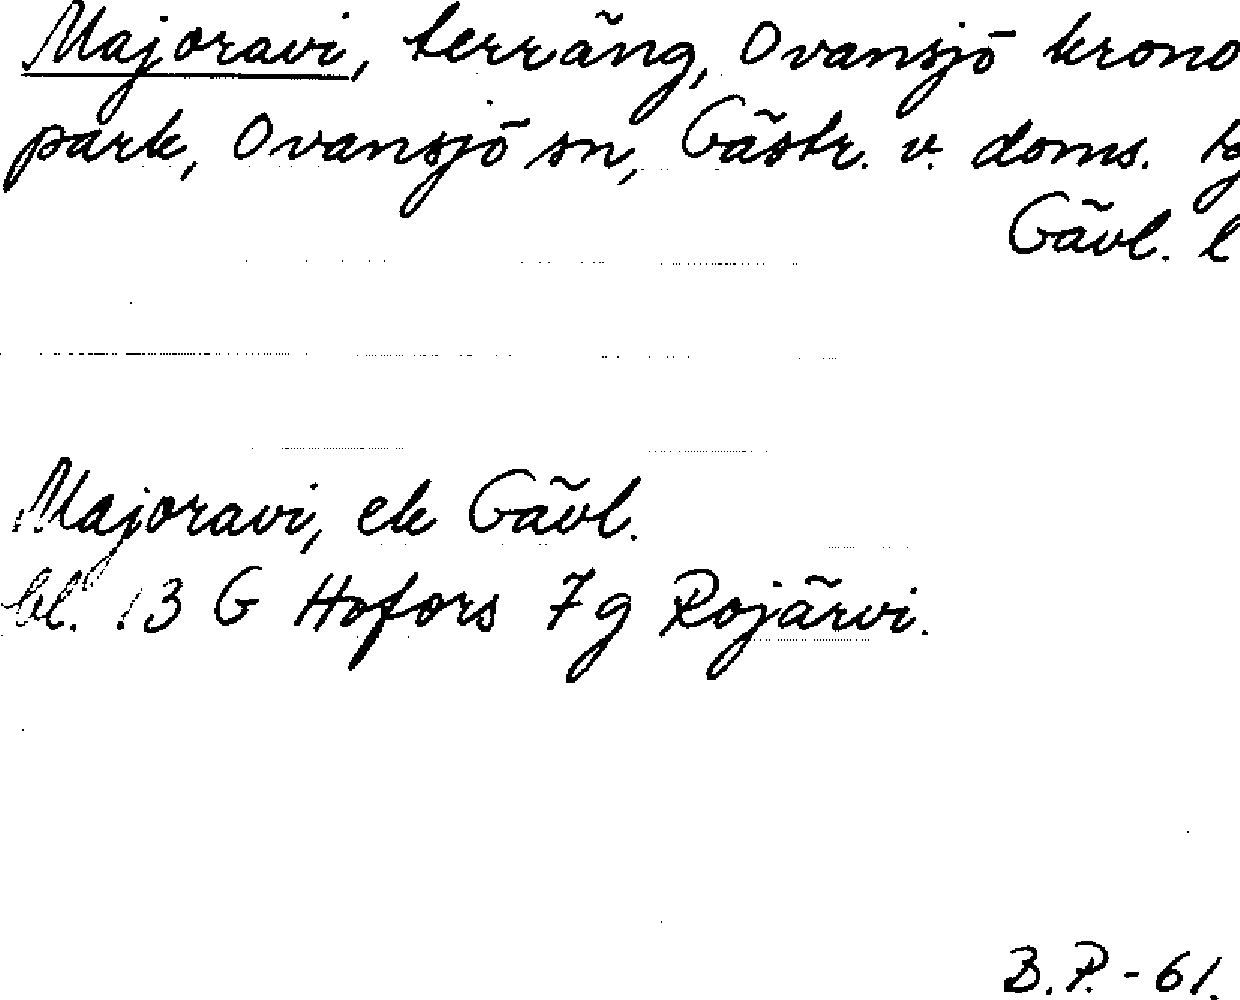 Majoravi, terräng, Ovansjö krono
park, Ovansjö sn, Gästr. v. doms. tg
Gävl. l
Majoravi, ek Gävl.
bl. 13 G Hofors 7g Rojärvi.
B.P.-61.